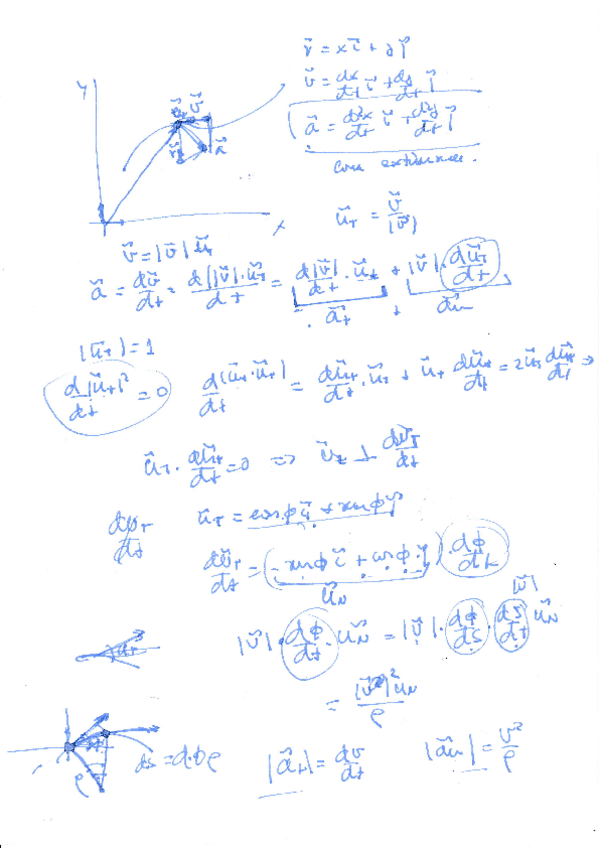 r⃗ = x i⃗ + y j⃗
y
v⃗ = dx/dt i⃗ + dy/dt j⃗
a⃗ = d²x/dt i⃗ + d²y/dt j⃗
x
u⃗_T = v⃗/|v⃗|
v⃗ = |v⃗| u⃗_T
a⃗ = dv⃗/dt = d(|v⃗|·u⃗_T)/dt = d|v⃗|/dt · u⃗_t + |v⃗| · du⃗_T/dt
a⃗_t + a⃗_n
|u⃗_T| = 1
d|u⃗_T|²/dt = 0 d(u⃗_T·u⃗_T)/dt = du⃗_T/dt · u⃗_T + u⃗_T du⃗_T/dt = 2u⃗_T du⃗_T/dt ⇒
u⃗_T · du⃗_T/dt = 0 ⇒ u⃗_T ⊥ du⃗_T/dt
du_T/dt u⃗_T = cos φ i⃗ + sen φ j⃗
du⃗_T/dt = (-sen φ i⃗ + cos φ · j⃗) · dφ/dt
u⃗_N
|v⃗|
|v⃗| · dφ/dt · u⃗_N = |v⃗| · dφ/ds · ds/dt u⃗_N
= |v⃗|² u_N / ρ
ρ ds = dφ ρ |a⃗_t| = dv/dt |a⃗_n| = v²/ρ